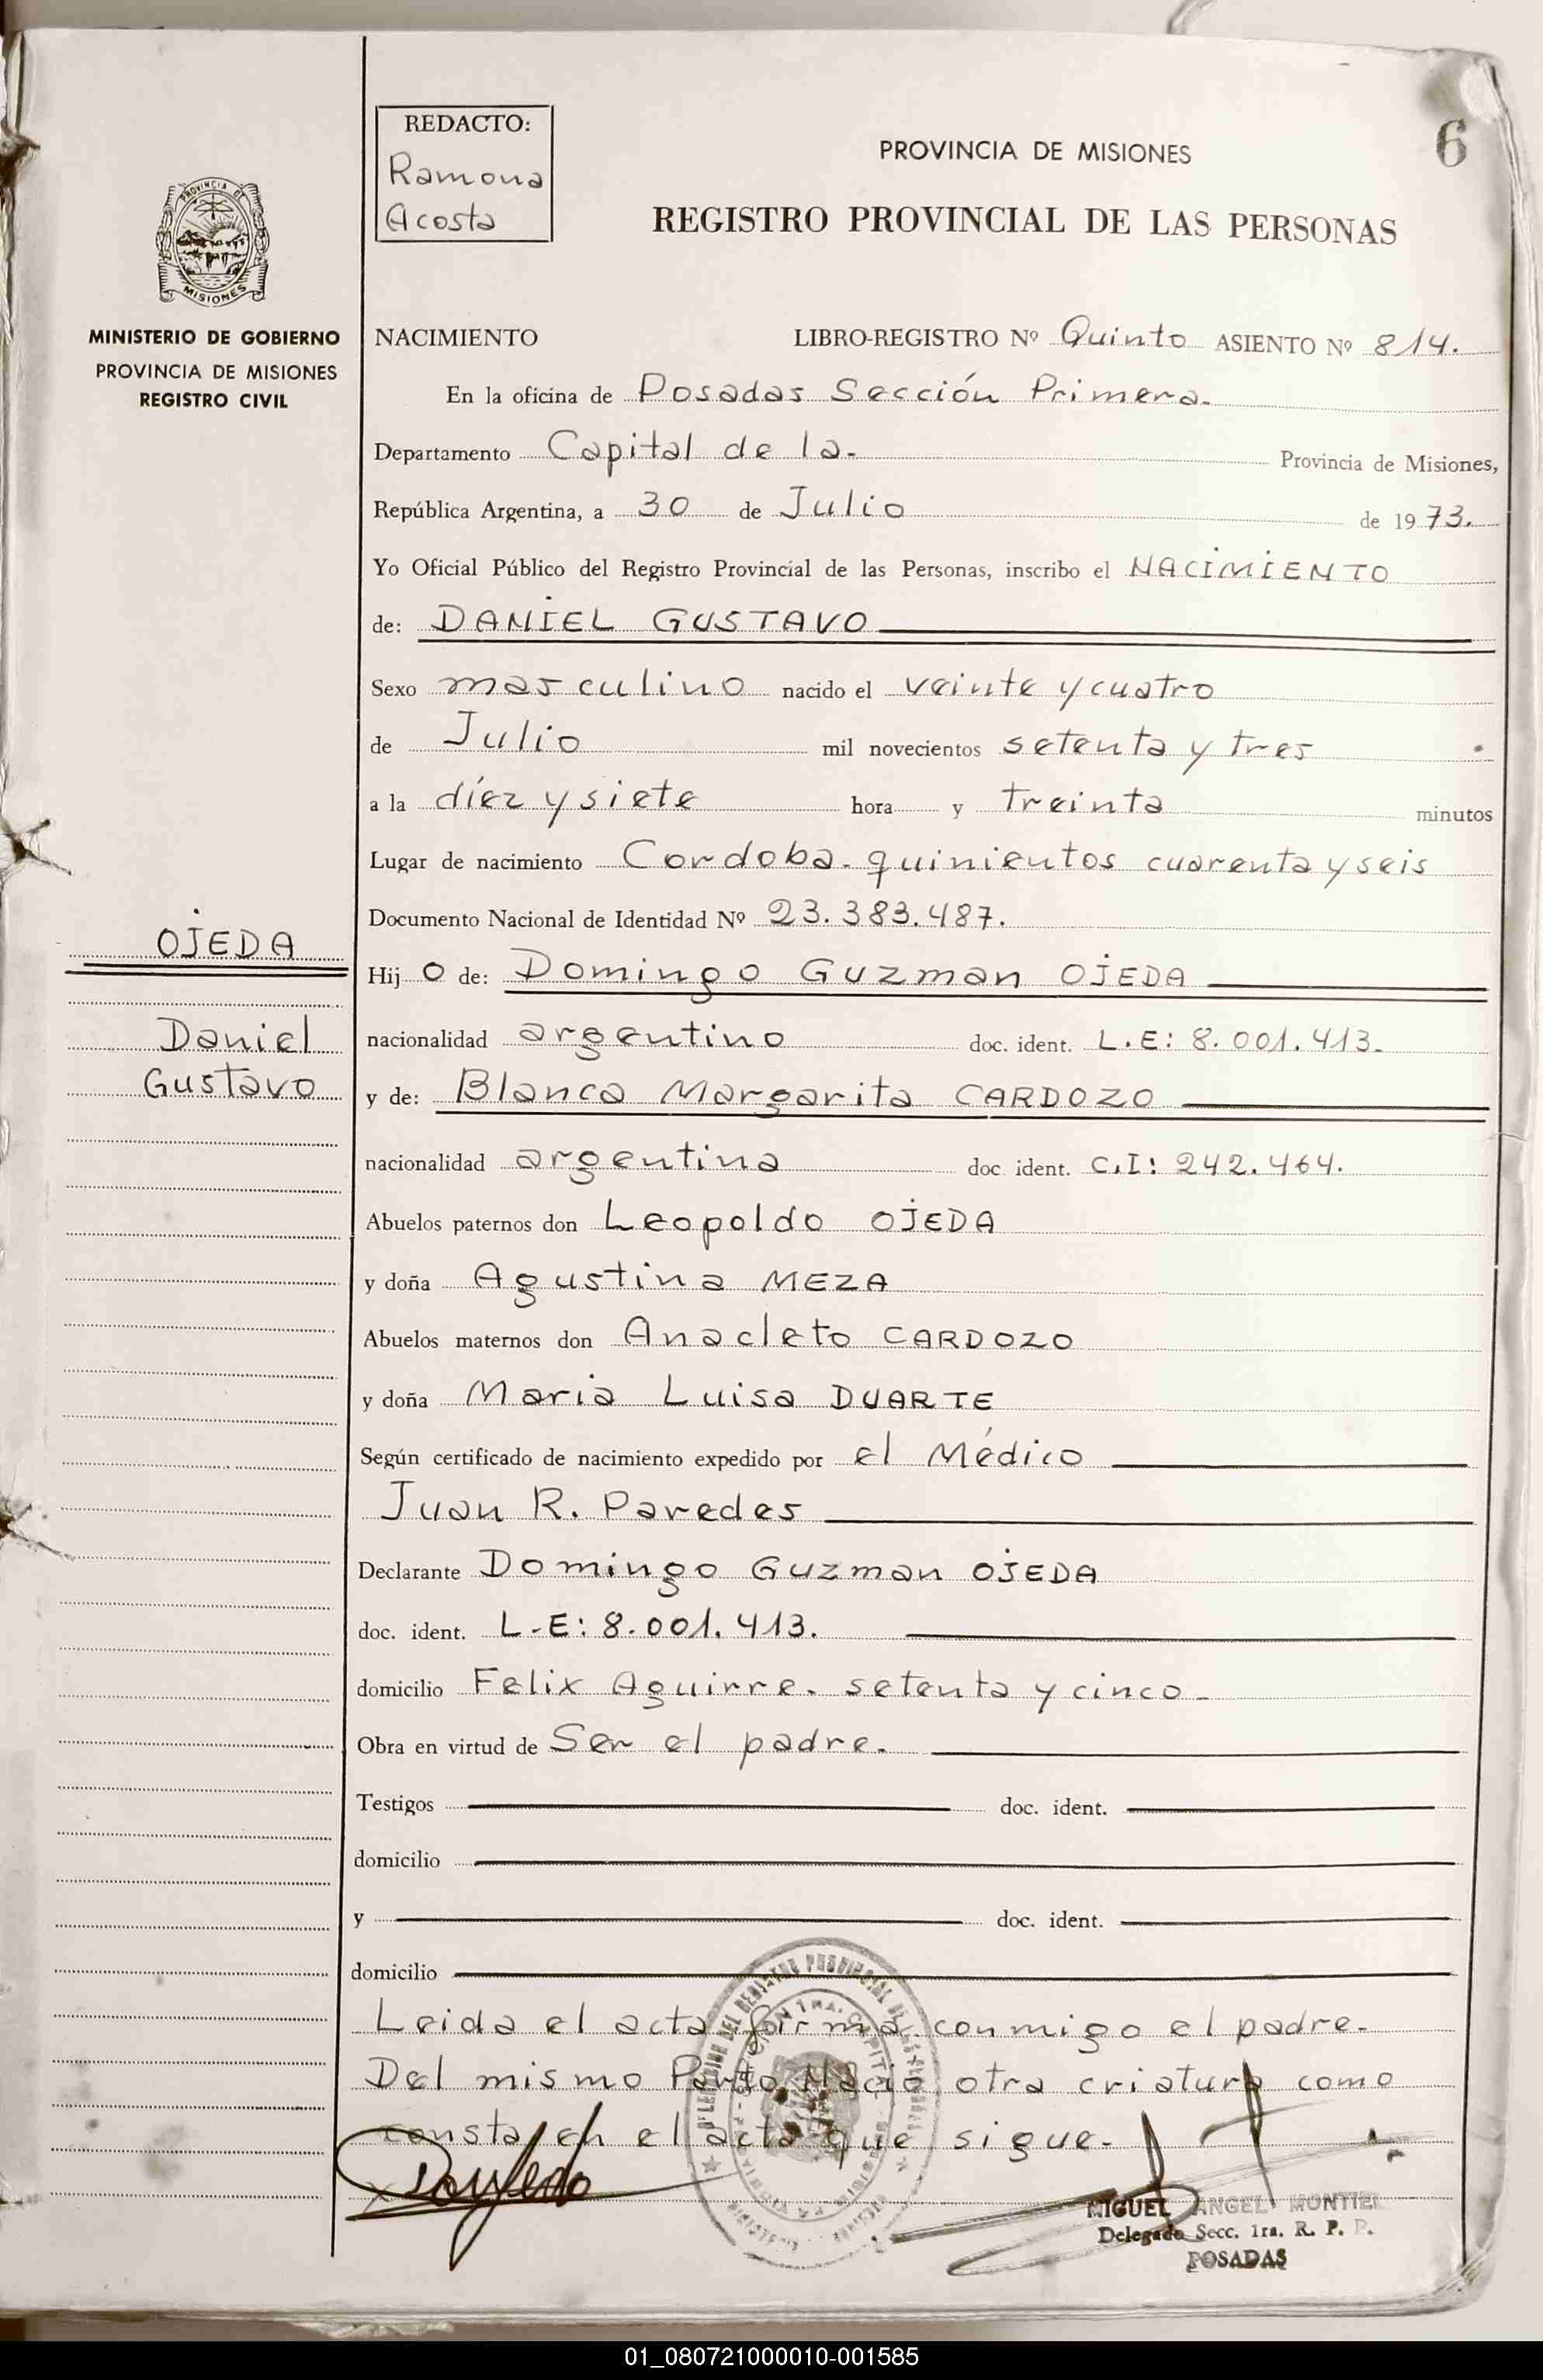 6
REDACTO:
Ramona
Acosta
PROVINCIA DE MISIONES
REGISTRO PROVINCIAL DE LAS PERSONAS
PROVINCIA DE
MISIONES
MINISTERIO DE GOBIERNO
PROVINCIA DE MISIONES
REGISTRO CIVIL
NACIMIENTO LIBRO-REGISTRO Nº Quinto ASIENTO Nº 814.
En la oficina de Posadas Sección Primera.
Departamento Capital de la. Provincia de Misiones,
República Argentina, a 30 de Julio de 1973.
Yo Oficial Público del Registro Provincial de las Personas, inscribo el NACIMIENTO
de: DANIEL GUSTAVO
Sexo masculino nacido el veinte y cuatro
de Julio mil novecientos setenta y tres
a la díez y siete hora y treinta minutos
Lugar de nacimiento Cordoba. quinientos cuarenta y seis
Documento Nacional de Identidad Nº 23.383.487.
OJEDA
Hijo de: Domingo Guzman OJEDA
Daniel
Gustavo
nacionalidad argentino doc. ident. L.E: 8.001.413.
y de: Blanca Margarita CARDOZO
nacionalidad argentina doc ident. C.I: 242.464.
Abuelos paternos don Leopoldo OJEDA
y doña Agustina MEZA
Abuelos maternos don Anacleto CARDOZO
y doña Maria Luisa DUARTE
Según certificado de nacimiento expedido por el Médico
Juan R. Paredes
Declarante Domingo Guzman OJEDA
doc. ident. L.E: 8.001.413.
domicilio Felix Aguirre. setenta y cinco.
Obra en virtud de Ser el padre.
Testigos doc. ident.
domicilio
y doc. ident.
domicilio
Leida el acta firma conmigo el padre.
Del mismo Parto Nació otra criatura como
consta en el acta que sigue.
MIGUEL ANGEL MONTIEL
Delegado Secc. 1ra. R. P. P.
POSADAS
01_080721000010-001585